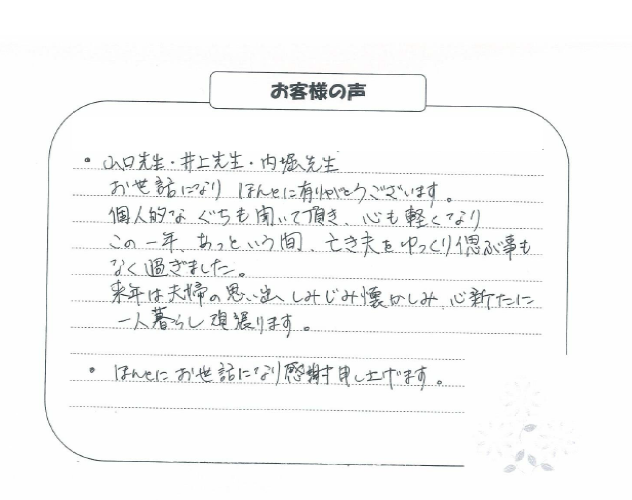 お客様の声
・山口先生・井上先生・内堀先生
お世話になり ほんとに有りがとうございます。
個人的な ぐちも聞いて頂き、心も軽くなり
この一年、あっという間、亡き夫をゆっくり偲ぶ事も
なく過ぎました。
来年は夫婦の思い出しみじみ懐かしみ、心新たに
一人暮らし頑張ります。
・ほんとに お世話になり感謝申し上げます。